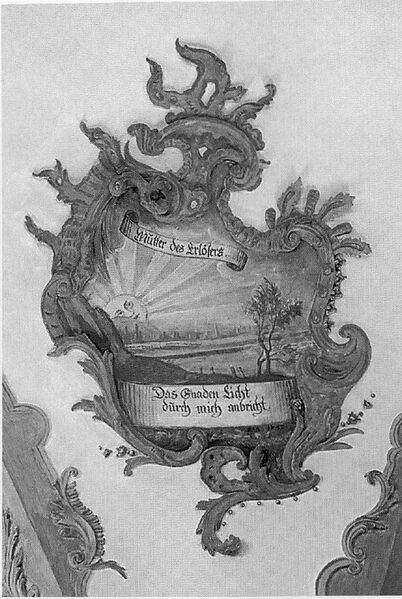 Mutter des Erlösers.
Das Gnaden Licht
dŭrch mich anbricht.